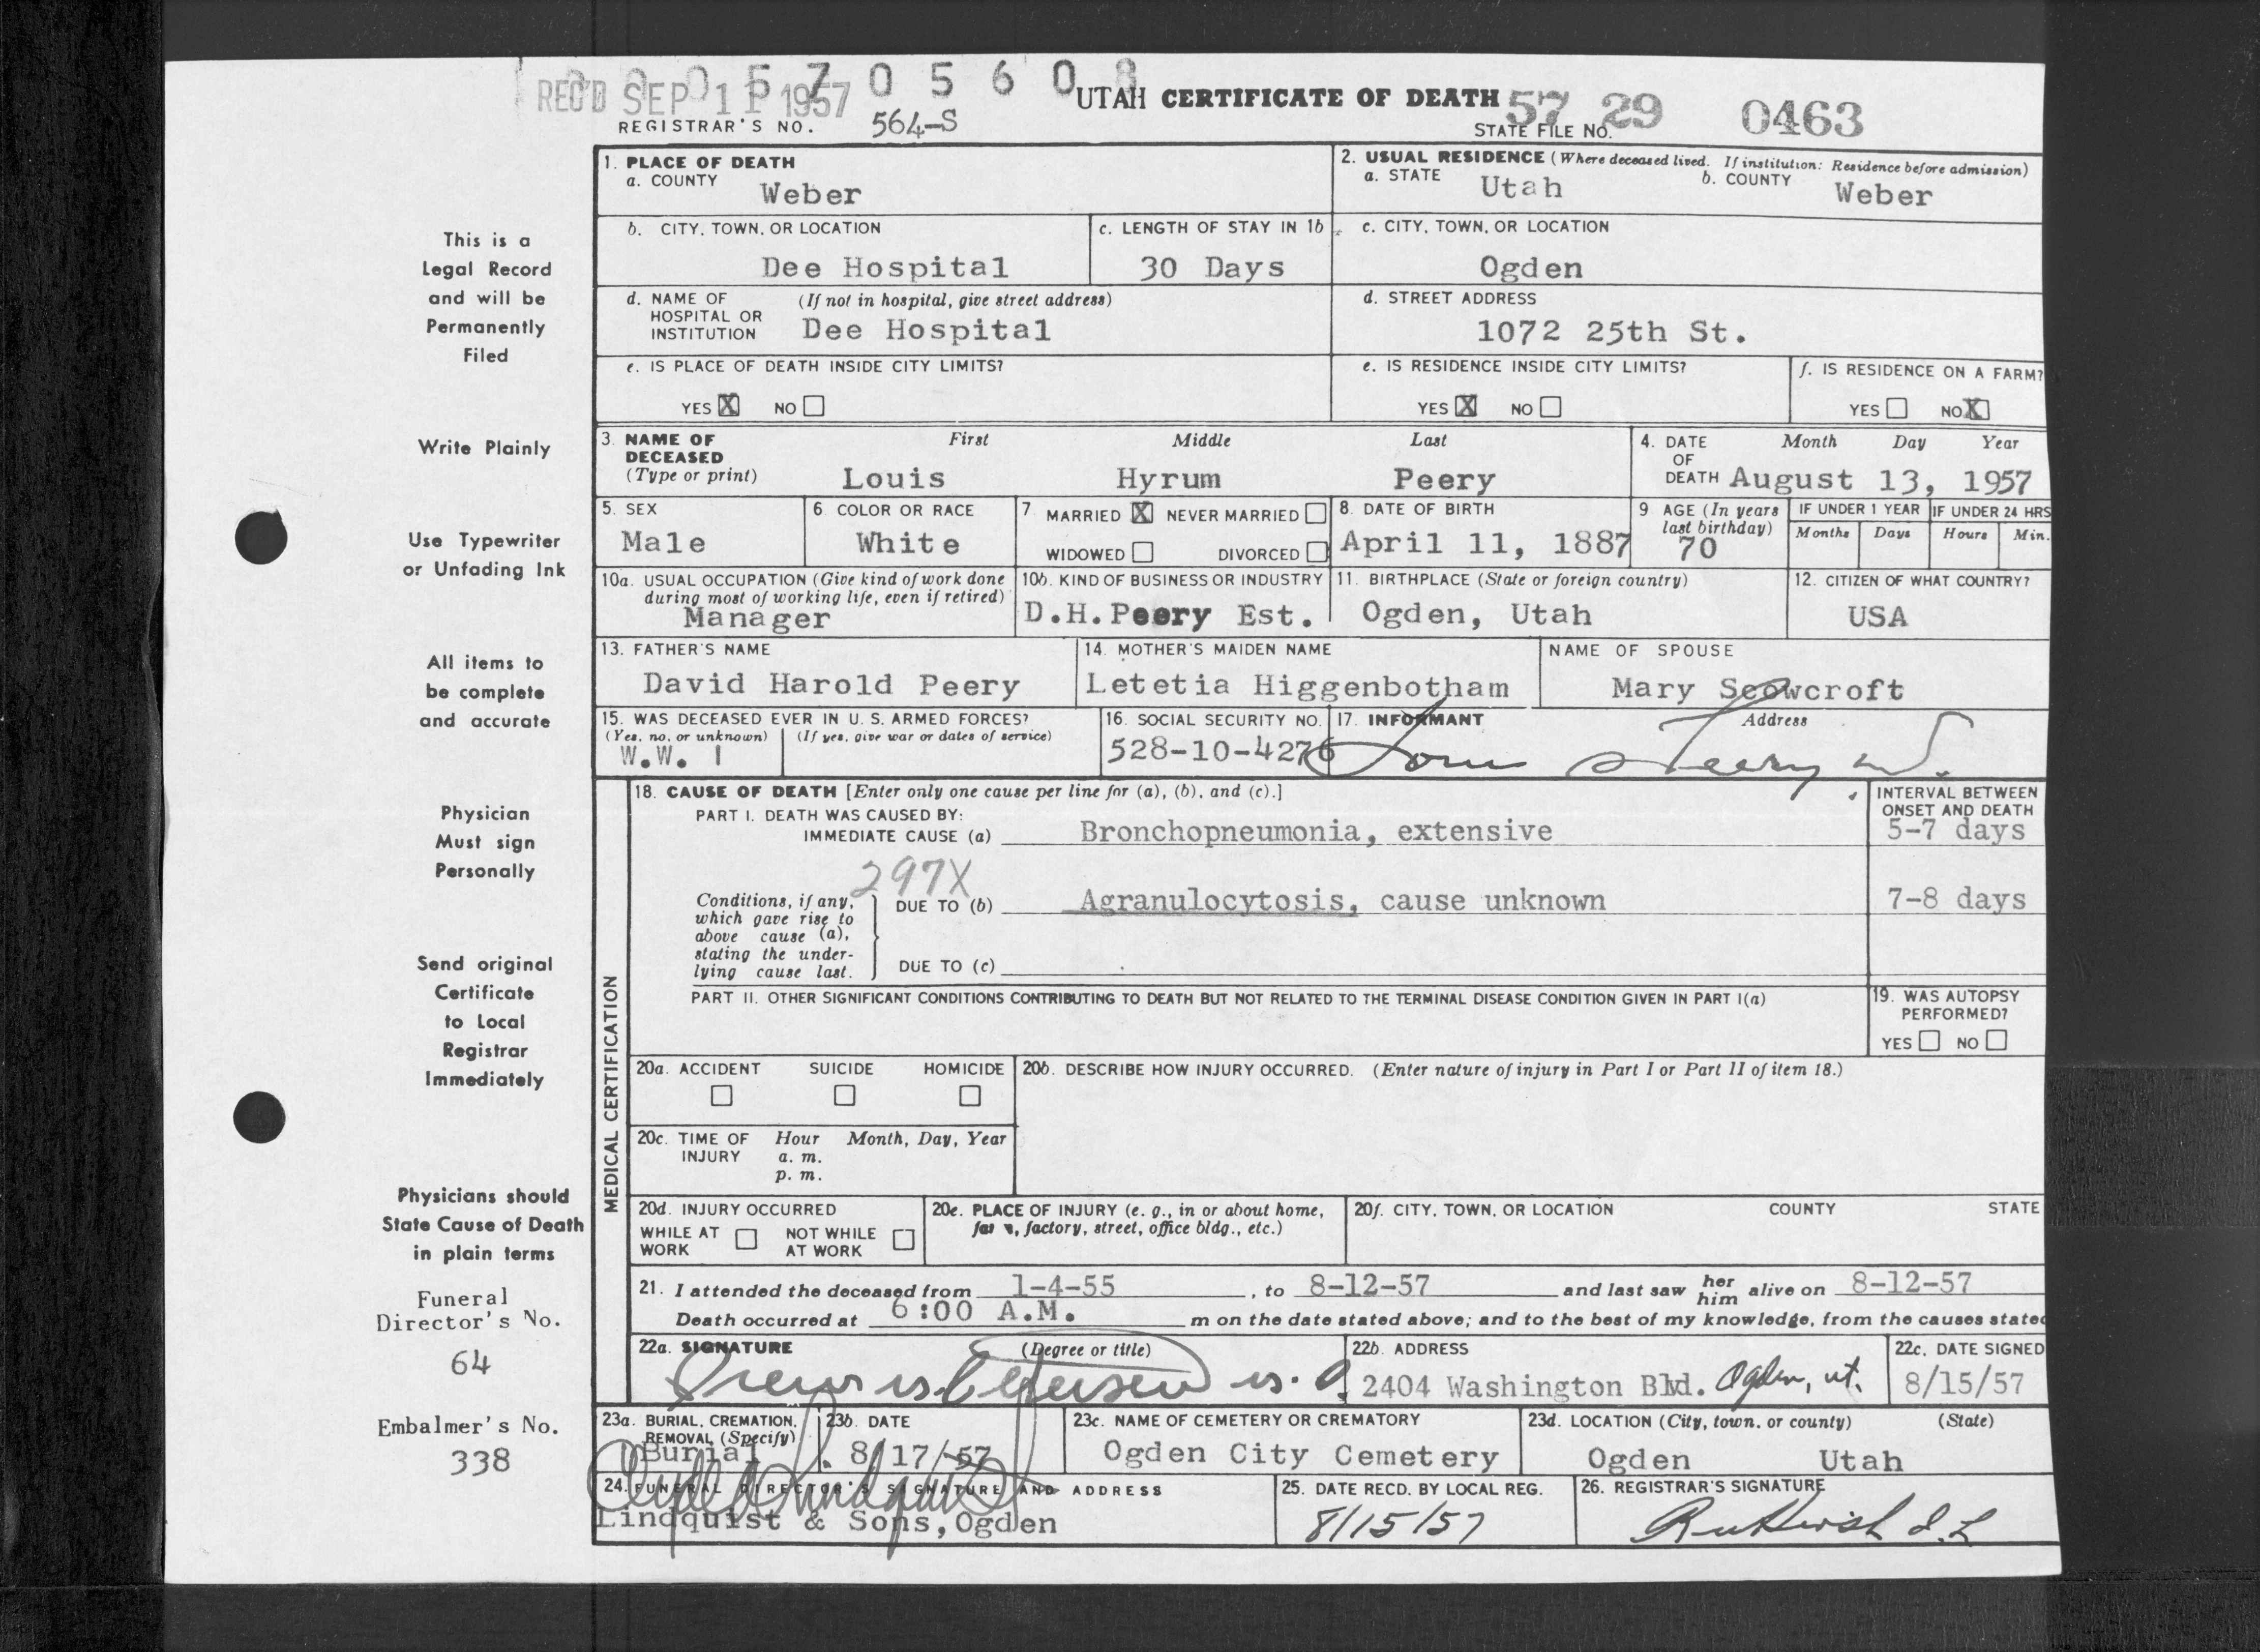 REC'D SEP 11 1957
0 5 7 0 5 6 0 8
UTAH CERTIFICATE OF DEATH
57 29 0463
REGISTRAR'S NO. 564-S
STATE FILE NO.
1. PLACE OF DEATH
a. COUNTY
Weber
2. USUAL RESIDENCE (Where deceased lived. If institution: Residence before admission)
a. STATE Utah b. COUNTY Weber
b. CITY, TOWN, OR LOCATION
Dee Hospital
c. LENGTH OF STAY IN 1b
30 Days
c. CITY, TOWN, OR LOCATION
Ogden
d. NAME OF HOSPITAL OR INSTITUTION (If not in hospital, give street address)
Dee Hospital
d. STREET ADDRESS
1072 25th St.
e. IS PLACE OF DEATH INSIDE CITY LIMITS?
YES X NO
e. IS RESIDENCE INSIDE CITY LIMITS?
YES X NO
f. IS RESIDENCE ON A FARM?
YES NO X
3. NAME OF DECEASED (Type or print)
First Middle Last
Louis Hyrum Peery
4. DATE OF DEATH Month Day Year
August 13, 1957
5. SEX
Male
6 COLOR OR RACE
White
7. MARRIED X NEVER MARRIED
WIDOWED DIVORCED
8. DATE OF BIRTH
April 11, 1887
9 AGE (In years last birthday)
70
IF UNDER 1 YEAR
Months Days
IF UNDER 24 HRS
Hours Min.
10a. USUAL OCCUPATION (Give kind of work done during most of working life, even if retired)
Manager
10b. KIND OF BUSINESS OR INDUSTRY
D.H.Peery Est.
11. BIRTHPLACE (State or foreign country)
Ogden, Utah
12. CITIZEN OF WHAT COUNTRY?
USA
13. FATHER'S NAME
David Harold Peery
14. MOTHER'S MAIDEN NAME
Letetia Higgenbotham
NAME OF SPOUSE
Mary Scowcroft
15. WAS DECEASED EVER IN U. S. ARMED FORCES?
(Yes, no, or unknown) (If yes, give war or dates of service)
W.W. I
16. SOCIAL SECURITY NO.
528-10-4276
17. INFORMANT Address
MEDICAL CERTIFICATION
18. CAUSE OF DEATH [Enter only one cause per line for (a), (b), and (c).]
INTERVAL BETWEEN ONSET AND DEATH
PART I. DEATH WAS CAUSED BY:
IMMEDIATE CAUSE (a) Bronchopneumonia, extensive
5-7 days
297X
Conditions, if any, which gave rise to above cause (a), stating the underlying cause last.
DUE TO (b) Agranulocytosis, cause unknown
7-8 days
DUE TO (c)
PART II. OTHER SIGNIFICANT CONDITIONS CONTRIBUTING TO DEATH BUT NOT RELATED TO THE TERMINAL DISEASE CONDITION GIVEN IN PART I(a)
19. WAS AUTOPSY PERFORMED?
YES NO
20a. ACCIDENT SUICIDE HOMICIDE
20b. DESCRIBE HOW INJURY OCCURRED. (Enter nature of injury in Part I or Part II of item 18.)
20c. TIME OF INJURY Hour Month, Day, Year
a. m.
p. m.
20d. INJURY OCCURRED
WHILE AT WORK NOT WHILE AT WORK
20e. PLACE OF INJURY (e. g., in or about home, factory, street, office bldg., etc.)
20f. CITY, TOWN, OR LOCATION COUNTY STATE
21. I attended the deceased from 1-4-55, to 8-12-57 and last saw her him alive on 8-12-57
Death occurred at 6:00 A.M. m on the date stated above; and to the best of my knowledge, from the causes stated
22a. SIGNATURE (Degree or title)
22b. ADDRESS
2404 Washington Blvd. Ogden, ut.
22c. DATE SIGNED
8/15/57
23a. BURIAL, CREMATION, REMOVAL (Specify)
Burial
23b. DATE
8/17/57
23c. NAME OF CEMETERY OR CREMATORY
Ogden City Cemetery
23d. LOCATION (City, town, or county) (State)
Ogden Utah
24. FUNERAL DIRECTOR'S SIGNATURE AND ADDRESS
Lindquist & Sons, Ogden
25. DATE RECD. BY LOCAL REG.
8/15/57
26. REGISTRAR'S SIGNATURE
This is a
Legal Record
and will be
Permanently
Filed
Write Plainly
Use Typewriter
or Unfading Ink
All items to
be complete
and accurate
Physician
Must sign
Personally
Send original
Certificate
to Local
Registrar
Immediately
Physicians should
State Cause of Death
in plain terms
Funeral
Director's No.
64
Embalmer's No.
338